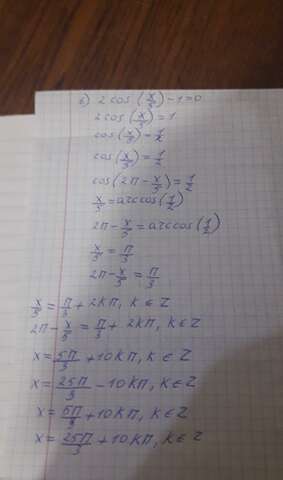 б) 2cos(x/5)-1=0
2cos(x/5)=1
cos(x/5)=1/2
cos(x/5)=1/2
cos(2π-x/5)=1/2
x/5=arccos(1/2)
2π-x/5=arccos(1/2)
x/5=π/3
2π-x/5=π/3
x/5=π/3+2kπ, k∈Z
2π-x/5=π/3+2kπ, k∈Z
x=5π/3+10kπ, k∈Z
x=25π/3-10kπ, k∈Z
x=5π/3+10kπ, k∈Z
x=25π/3+10kπ, k∈Z